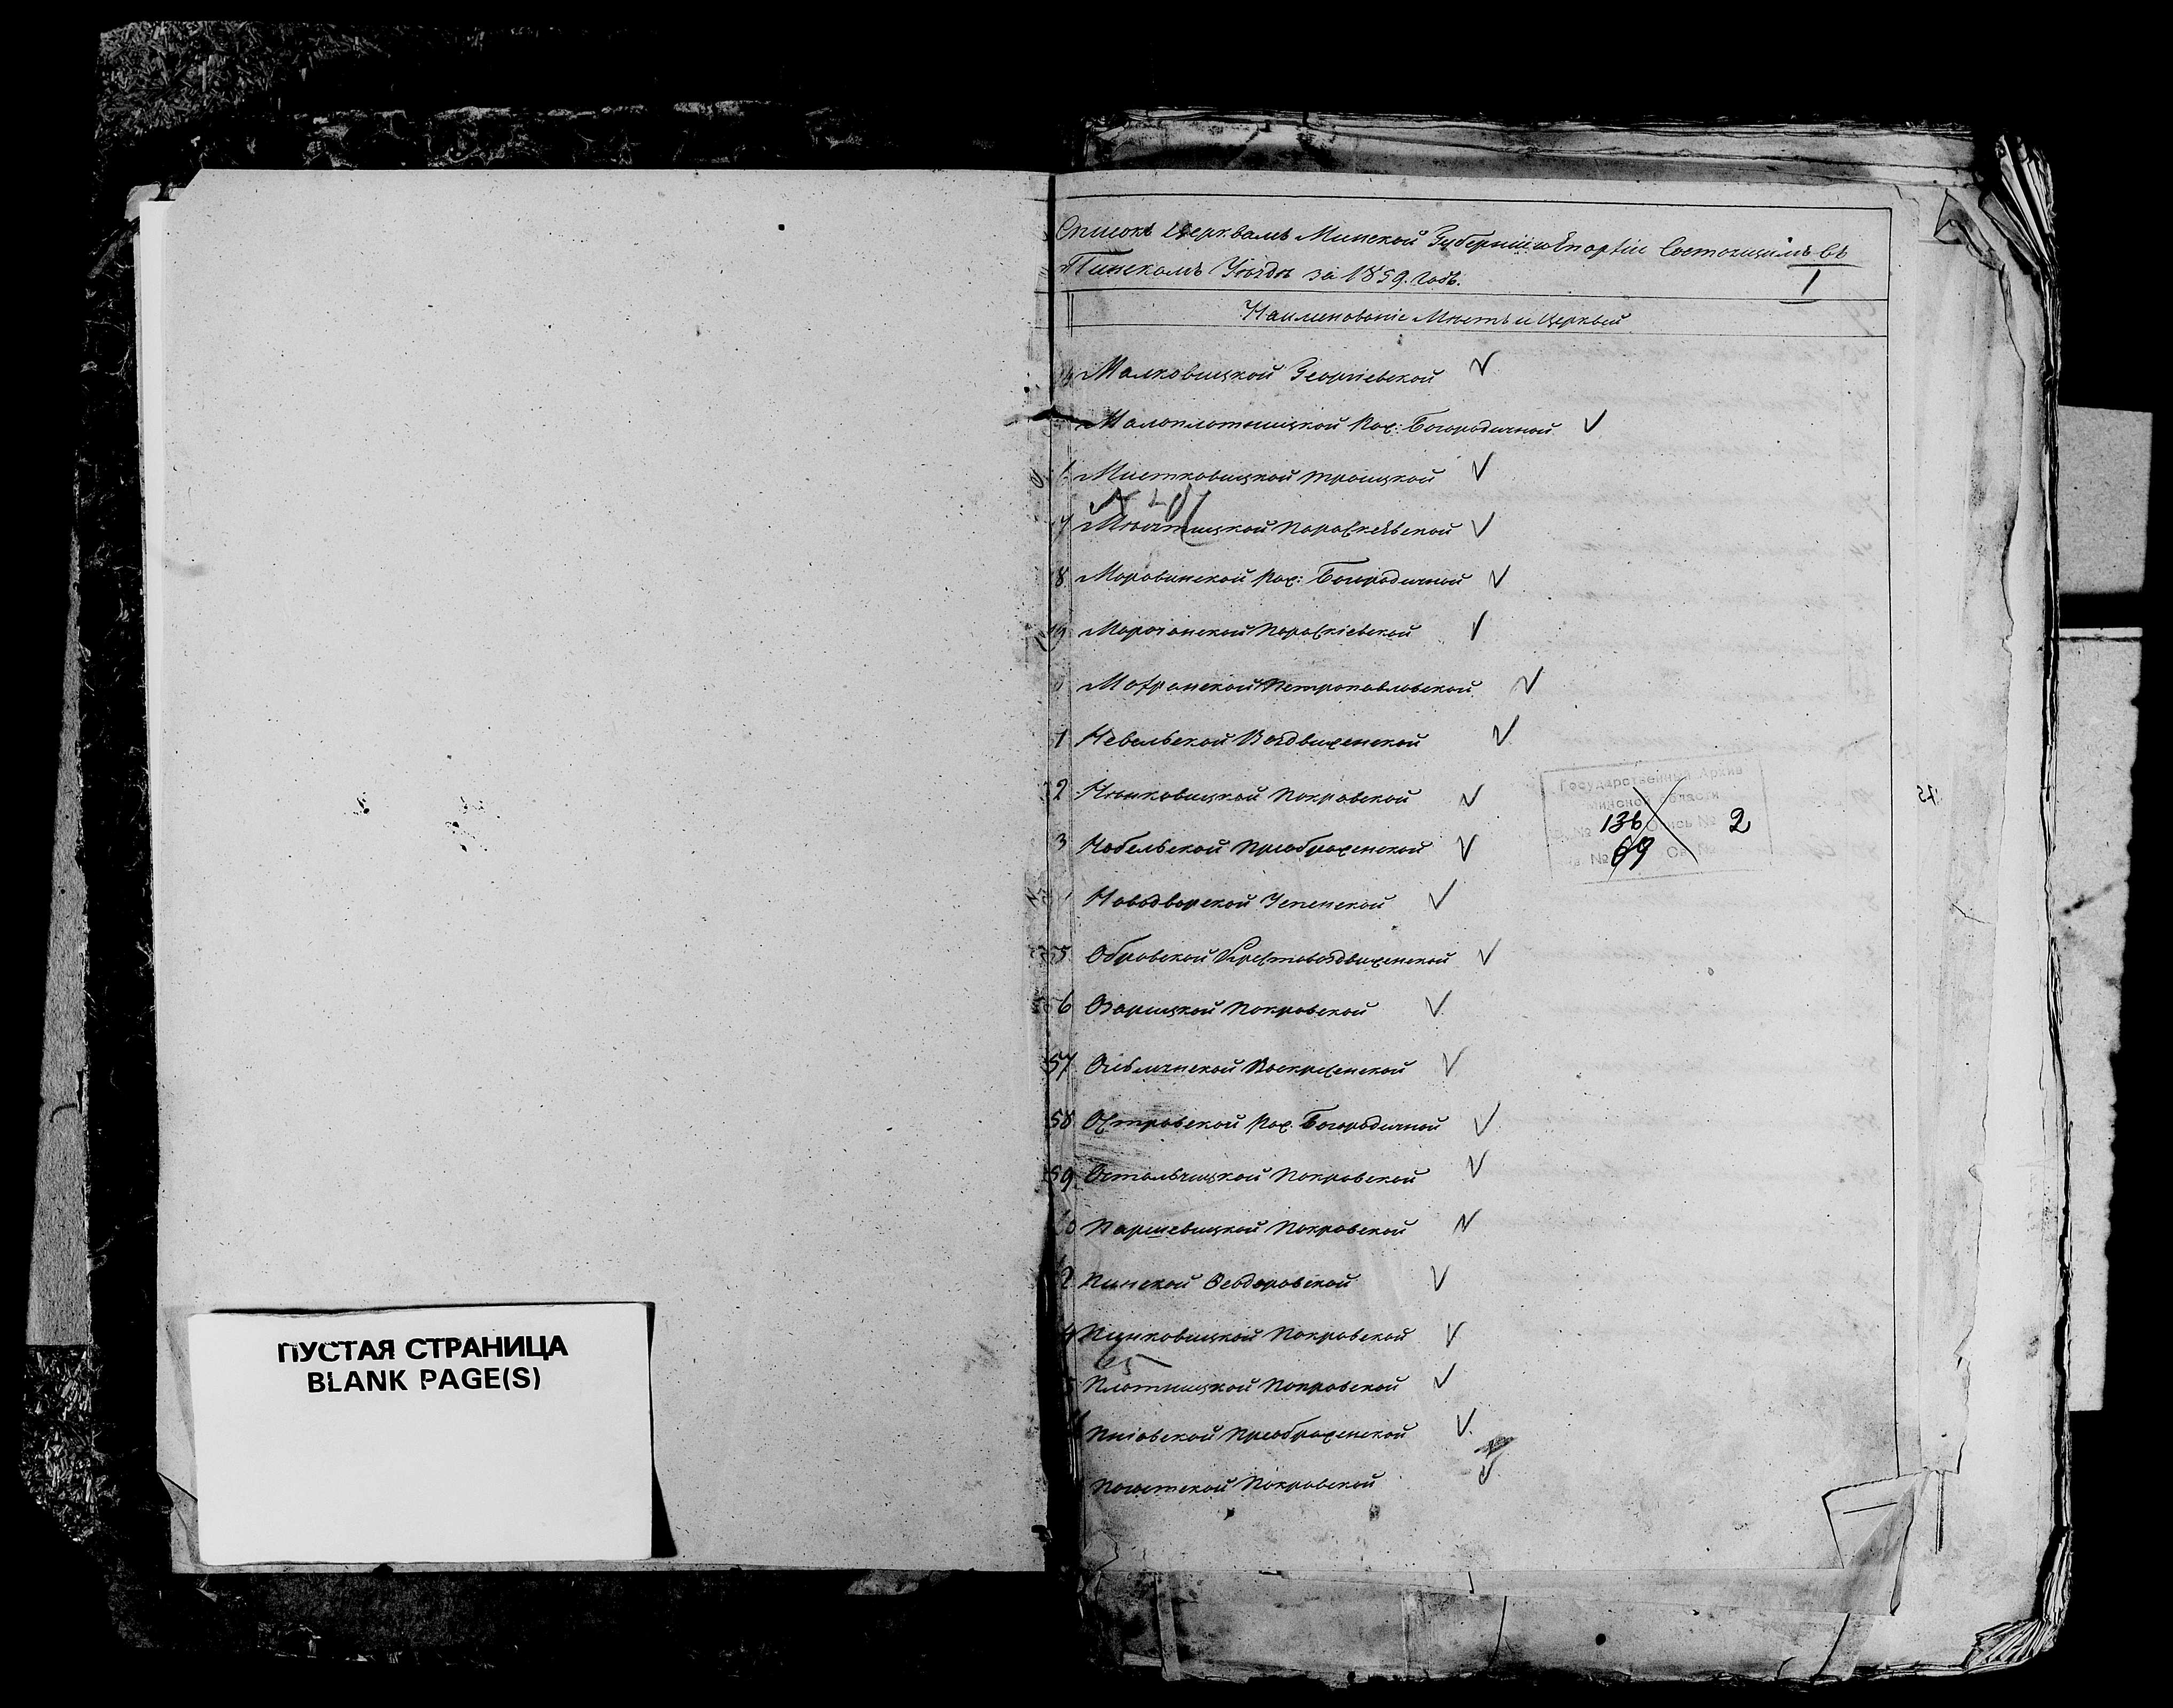 Списокъ Церквамъ Минской Губерніи и Епархіи Состоящимъ въ
Пинскомъ Уѣздѣ за 1859. годъ.
1
Наименованіе Мѣстъ и Церквей
Малковицкой Георгіевской
Малоплотницкой Рож: Богородичной
Мистковицкой Троицкой
7 Параскевьевской
8 Рож: Богородичной
49 Морочанской Параскіевской
Петропавловской
1 Невельской Воздвиженской
2 Нянковицкой Покровской
3 Нобельской Преображенской
Новодворской Успенской
55 Обровской Крестовоздвиженской
56 Озарицкой Покровской
57 Воскресенской
58 Островской Рож. Богородичной
59 Покровской
Паршевицкой Покровской
2 Пинской Ѳеодоровской
Покровской
65
Плотницкой Покровской
Пніовской Преображенской
Погостской Покровской
Государственный Архив
Минской области
136 Опись № 2
№ 69 Св. №
ПУСТАЯ СТРАНИЦА
BLANK PAGE(S)